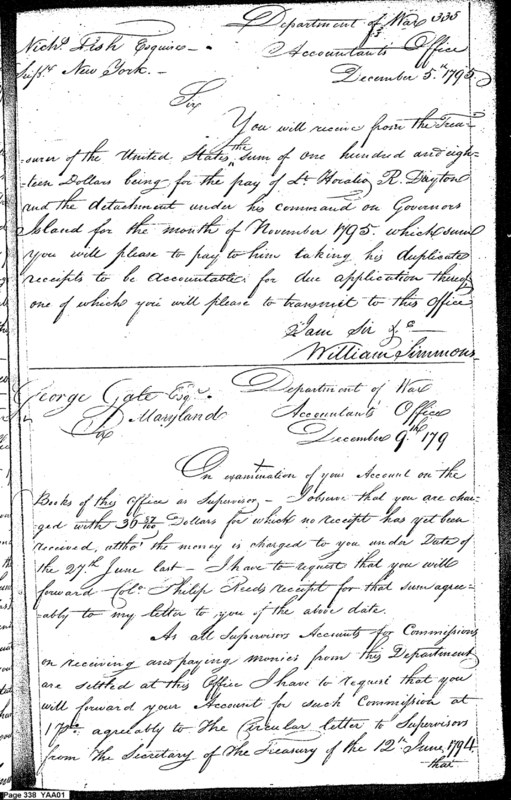 Department of War 335
Nichs. Fish Esquire
Accountant's Office
Supr. New York.
December 5th 1795
Sir
You will receive from the Trea-
surer of the United States the sum of one hundred and eigh-
teen Dollars being for the pay of Lt. Horatio R. Dayton
and the detachment under his command on Governors
Island for the month of November 1795 which sum
you will please to pay to him taking his duplicate
receipts to be accountable for due application thereof
one of which you will please to transmit to this Office
I am Sir &c
William Simmons
George Gale Esqr.
Department of War
Maryland
Accountant's Office
Sir
December 9th 179
On examination of your Account on the
Books of this Office as Supervisor - I observe that you are char-
ged with 36 Dollars for which no receipt has yet been
received, altho' the money is charged to you under Date of
the 27th June last - I have to request that you will
forward Colo. Philip Reeds receipt for that sum agree-
-ably to my letter to you of the above date.
As all Supervisors Accounts for Commissions
on receiving and paying monies from this Department
are settled at this Office I have to request that you
will forward your Account for such Commission at
1 agreably to The Circular letter to Supervisors
from The Secretary of The Treasury of the 12th June, 1794
that
Page 338 YAA01